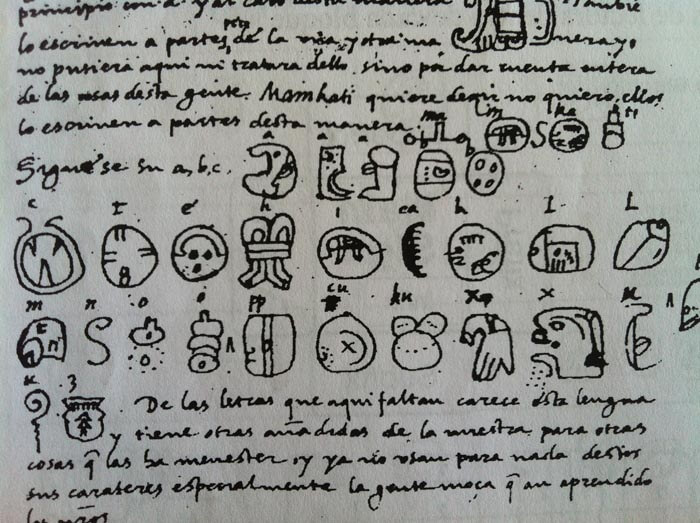 principio con a y al cabo desta manera
lo escriven a partes, pero de la una, y otra ma nera, yo
no pusiera aqui ni tratara dello, sino por dar cuenta entera
de las cosas desta gente. Mainkati quiere dezir no quiero, ellos
lo escriven a partes desta manera.
ma i n ka ti
Siguese su a, b, c.
a a a b b
c t e h i ca k l l
m n o o pp cu ku x x u
u z
De las letras que aqui faltan carece esta lengua
y tiene otras añadidas de la nuestra para otras
cosas q̃ las ha menester, y ya no usan para nada destos
sus carateres especialmente la gente moça q̃ an aprendido
los nros